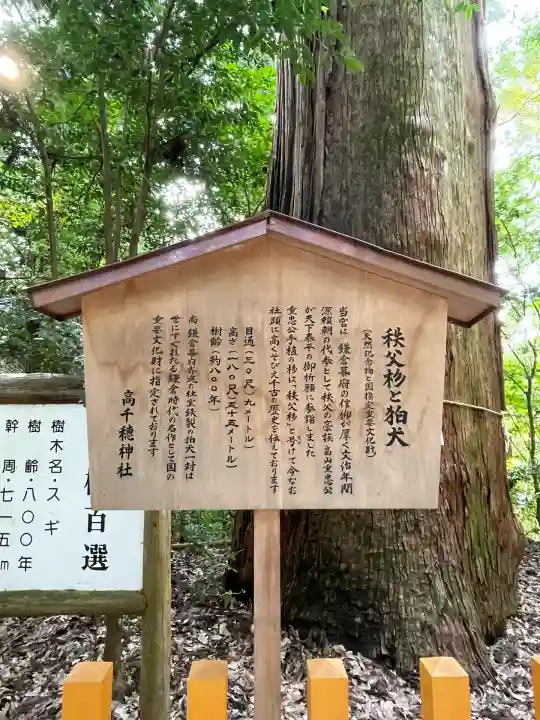 秩父杉と狛犬
(天然記念物と国指定重要文化財)
当宮は 鎌倉幕府の信仰が厚く文治年間
源頼朝の代参として秩父の豪族 畠山重忠公
が天下泰平の御祈願に参詣しました
重忠公手植の杉は「秩父杉」と号けて今なお
社頭に高くそびえ千古の歴史を伝えております
目通(三〇尺)九メートル)
高さ(一八〇尺)五十五メートル)
樹齢(約八〇〇年)
尚 鎌倉幕府寄進の社宝鉄製の狛犬一対は
世にすぐれたる鎌倉時代の名作として国の
重要文化財に指定されております
高千穂神社
百選
樹木名・スギ
樹 齢・八〇〇年
幹 周・七一五m